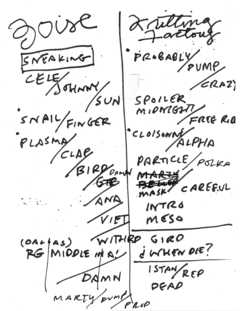 Boise
SNEAKING
CELE/
JOHNNY/
SUN
SNAIL/FINGER
PLASMA/
CLAP
BIRD/DAMN
ANA
VIET
WITHRD
(DALLAS)
RG MIDDLE IN A!
DAMN
MARTY/DUMP/
Knitting
Factory
PROBABLY/
PUMP/
CRAZY
SPOILER
MIDNIGHT/FREE RID
CLOISONN/
ALPHA
PARTICLE/POLKA
MARTY
MASK/CAREFUL
INTRO
MESO
GIRD
¿WHEN DIE?
ISTAN/RED
DEAD